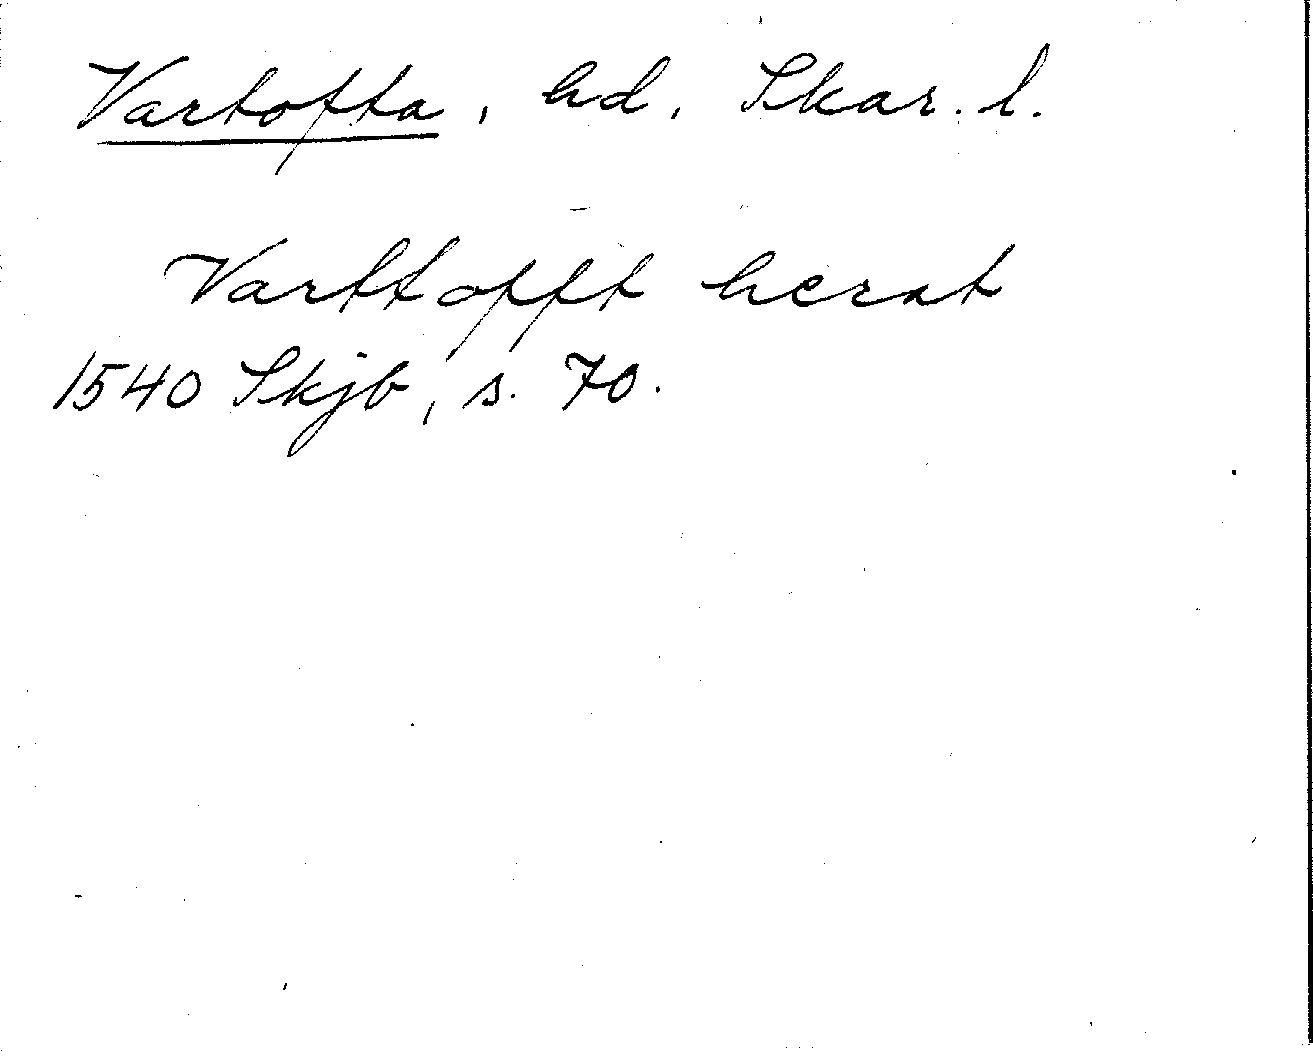 Vartofta, hd, Skar. l.
Varttofft herat
1540 Skjb, s. 70.